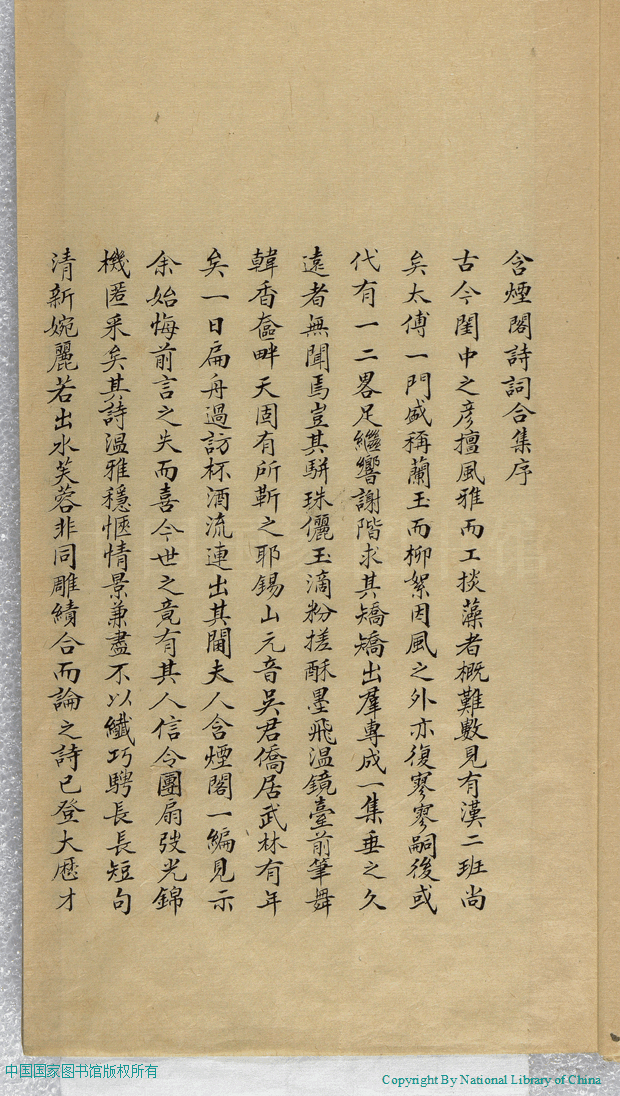 含煙閣詩詞合集序
古今閨中之彥擅風雅而工掞藻者概難數見有漢二班尚
矣太傅一門盛稱蘭玉而柳絮因風之外亦復寥寥嗣後或
代有一二畧足繼響謝階求其矯矯出羣專成一集垂之久
遠者無聞焉豈其駢珠儷玉滴粉搓酥墨飛温鏡臺前筆舞
韓香奩畔天固有所靳之耶錫山元音吳君僑居武林有年
矣一日扁舟過訪杯酒流連出其閫夫人含煙閣一編見示
余始悔前言之失而喜今世之竟有其人信令團扇弢光錦
機匿采矣其詩温雅穩愜情景兼盡不以纖巧騁長長短句
清新婉麗若出水芙蓉非同雕績合而論之詩已登大歷才
中国国家图书馆版权所有
Copyright By National Library of China